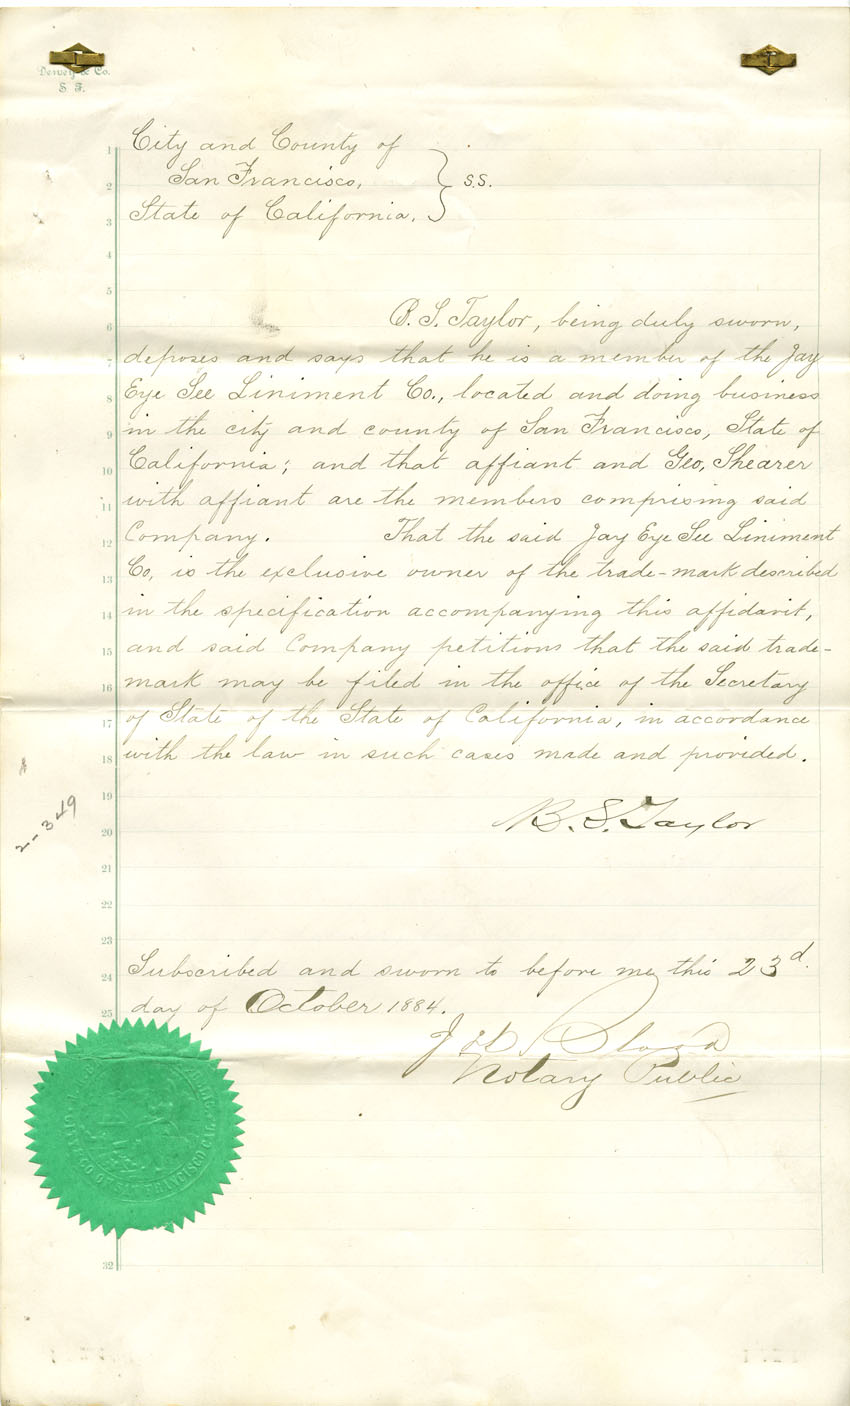 Dewey & Co.
S. F.
City and County of
San Francisco,
State of California.
s.s.
B. S. Taylor, being duly sworn,
deposes and says that he is a member of the Jay
Eye See Liniment Co., located and doing business
in the city and county of San Francisco, State of
California; and that affiant and Geo. Shearer
with affiant are the members comprising said
Company. That the said Jay Eye See Liniment
Co. is the exclusive owner of the trade-mark described
in the specification accompanying this affidavit,
and said Company petitions that the said trade-
mark may be filed in the office of the Secretary
of State of the State of California, in accordance
with the law in such cases made and provided.
B. S. Taylor
2-349
Subscribed and sworn to before me this 23d.
day of October 1884.
Notary Public
1
2
3
4
5
6
7
8
9
10
11
12
13
14
15
16
17
18
19
20
21
22
23
24
25
32
CITY & CO. OF SAN FRANCISCO CAL.